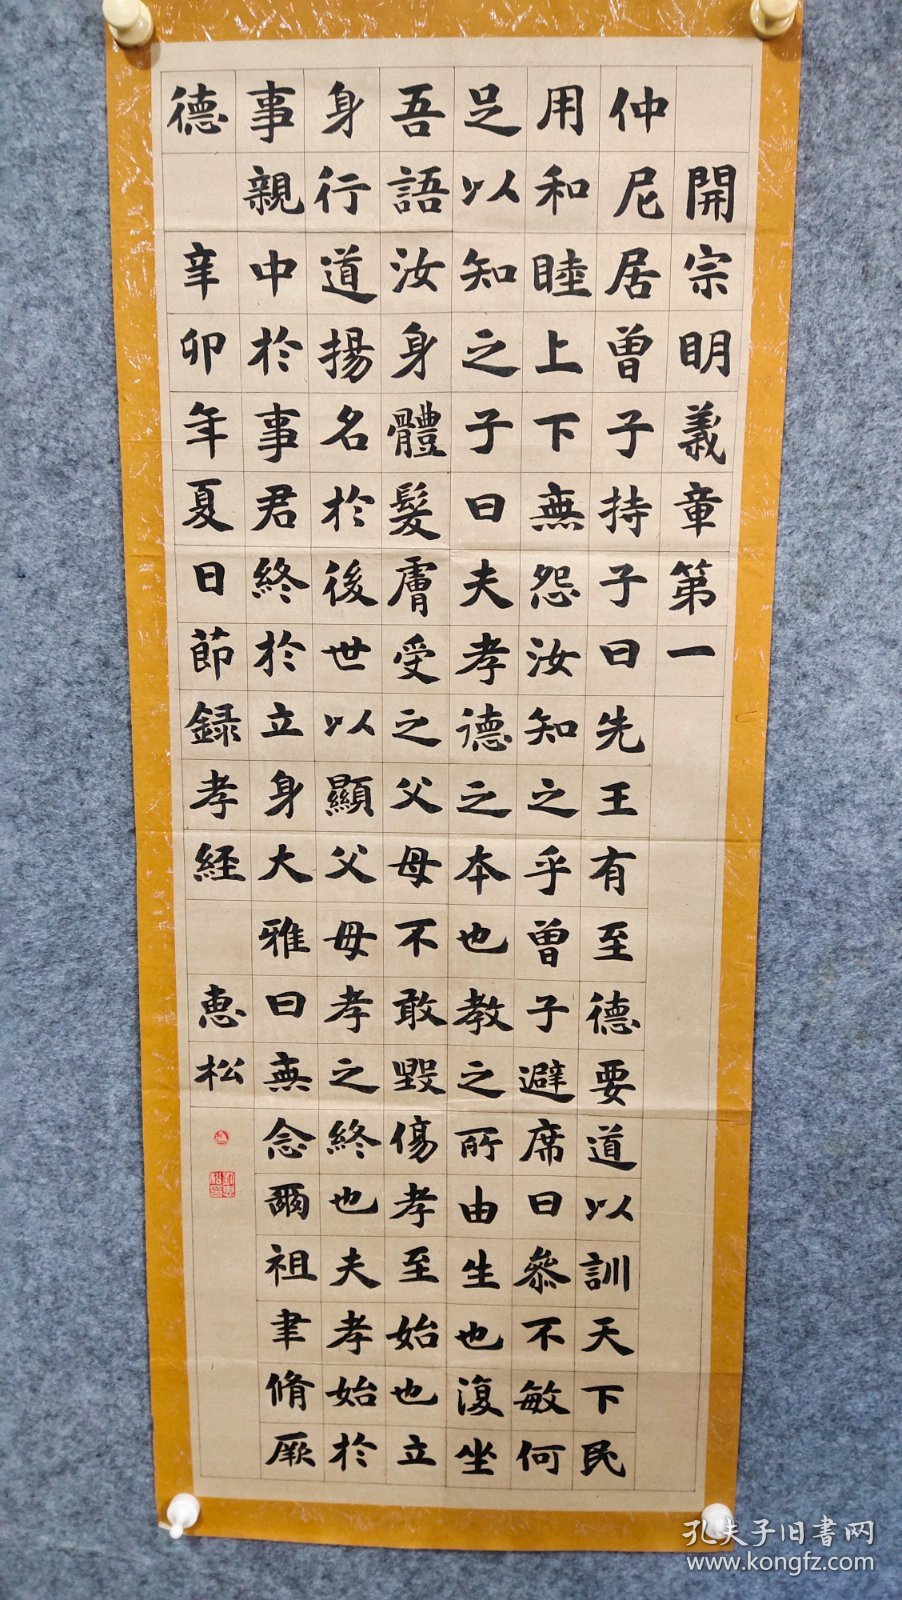 開宗明義章第一
仲尼居曾子持子曰先王有至德要道以訓天下民
用和睦上下無怨汝知之乎曾子避席曰參不敏何
足以知之子曰夫孝德之本也教之所由生也復坐
吾語汝身體髮膚受之父母不敢毀傷孝至始也立
身行道揚名於後世以顯父母孝之終也夫孝始於
事親中於事君終於立身大雅曰無念爾祖聿脩厥
德
辛卯年夏日節録孝經 惠松
孔夫子旧書网
www.kongfz.com